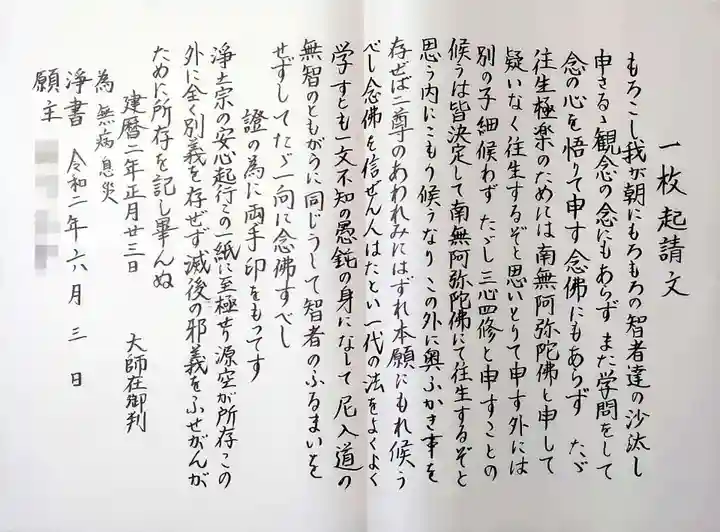 一枚起請文
もろこし我が朝にもろもろの智者達の沙汰し
申さるゝ観念の念にもあらず また学問をして
念の心を悟りて申す 念佛にもあらず たゞ
往生極楽のためには 南無阿弥陀佛と申して
疑いなく往生するぞと思いとりて申す外には
別の子細候わず たゞし三心四修と申すことの
候うは皆決定して南無阿弥陀佛にて往生するぞと
思う内にこもり候うなり この外に奥ふかき事を
存ぜば二尊のあわれみにはずれ本願にもれ候う
べし 念佛を信ぜん人はたとい一代の法をよくよく
学すとも一文不知の愚鈍の身になして 尼入道の
無智のともがらに同じうして智者のふるまいを
せずしてたゞ一向に念佛すべし
證の為に両手印をもってす
浄土宗の安心起行この一紙に至極せり 源空が所存この
外に全く別義を存ぜず 滅後の邪義をふせがんが
ために所存を記し畢んぬ
建暦二年正月廿三日 大師在御判
為 無病息災
浄書 令和二年六月三日
願主